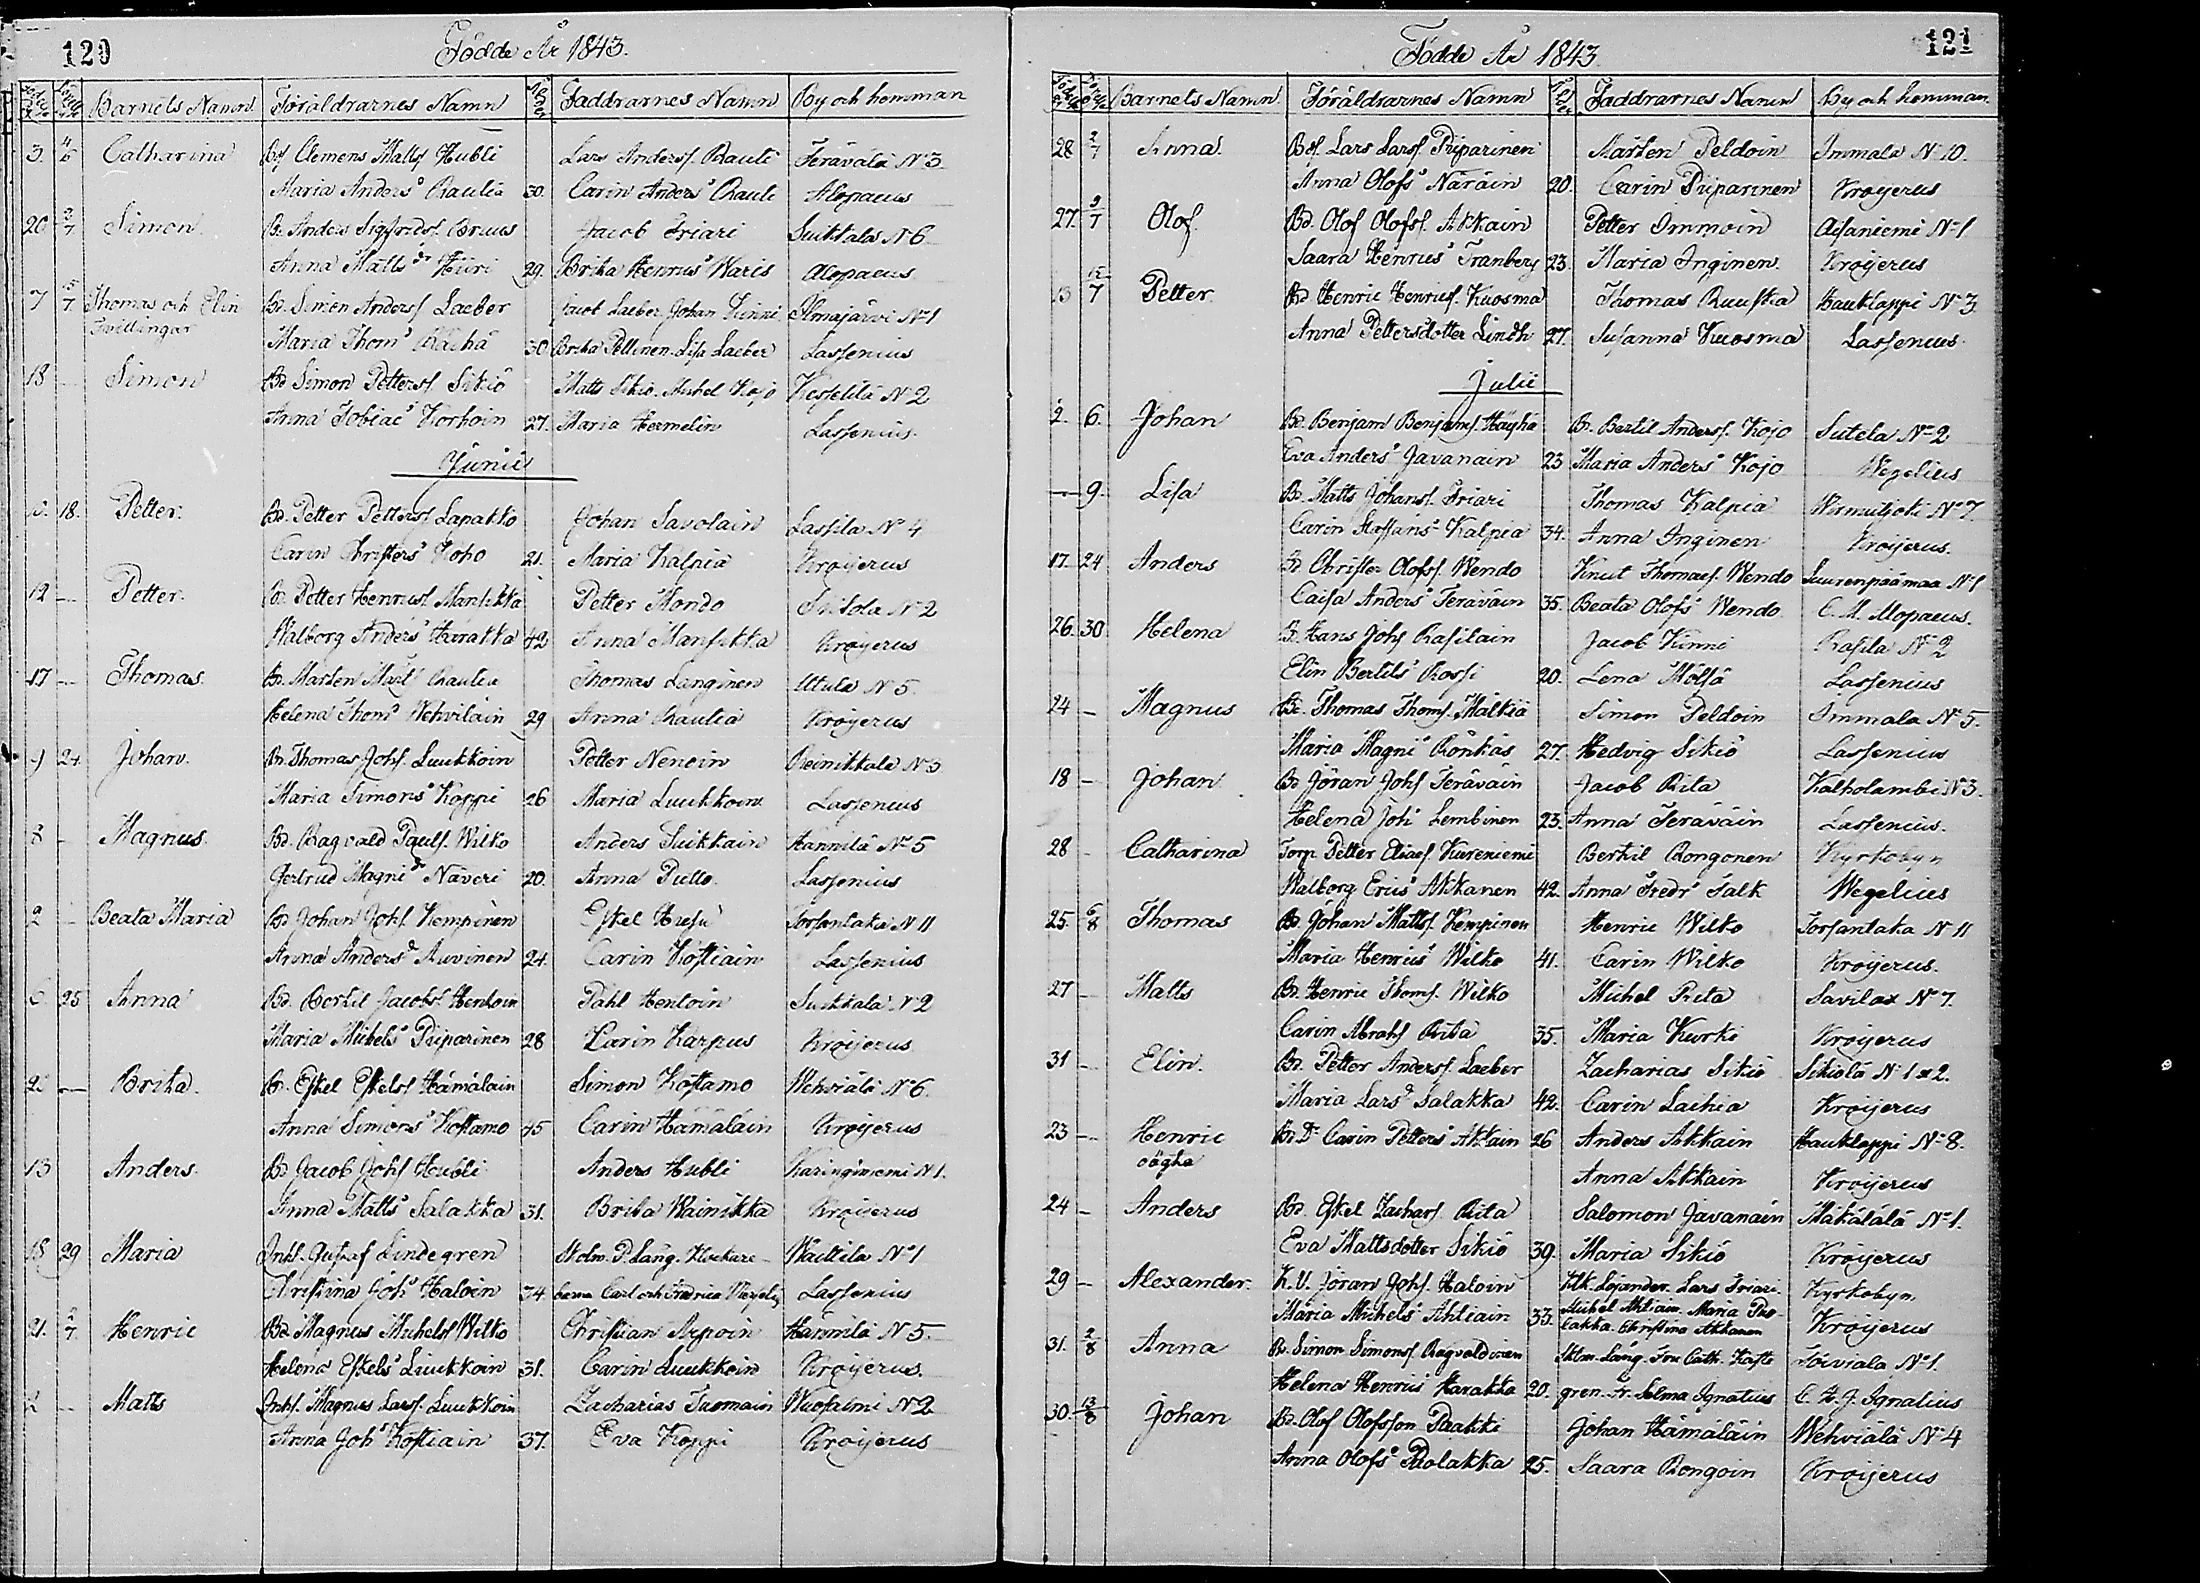 120
Födde År 1843.
Barnets Namn Föräldrarnes Namn Ålder Faddrarnes Namn By och hemman
3. 4/6 Catharina Bd Clemens Matts Hubli Lars Anderss. Rauli Terävälä No 3
Maria Anders Raulia 30. Carin Anders Rauli Alopaeus
20 2/7 Simon B. Anders Sigfridss. Bruus Jacob Friari Suikkala No 6
Anna Matts dr Hiiri 29. Brita Henrics Waris Alopaeus
7 5/7 Thomas och Elin Bd. Simon Anderss Laeber Jacob Laeber Johan Kinni Ilmajärvi No 1
Tvillingar Maria Thoms Räihä 30 Brita Pellinen Lisa Laeber Lassenius
18 — Simon Bd Simon Petterss. Sikiö Matts Sikiö. Michel Kojo Keskilä No 2
Anna Tobiae Korhoin 27. Maria Hermelin Lassenius.
Junii
18. Petter. Bd. Petter Petterss Lapakko Johan Savolain Lassila No 4
Carin Christers Koho 21. Maria Kalpia Kroijerus
12 — Petter. Bd. Petter Henricss. Mansikka Petter Mondo No 2
Walborg Anders Harakka 42 Anna Mansikka Kroijerus
17 — Thomas. Bd. Mårten Mårt Raulia Thomas Langinen Uttula No 5.
Helena Thoms Wehviläin 29 Anna Raulia Kroijerus
9 24 Johan. Bd. Thomas Johs. Luukkoin Petter Nenoin Reinikkala No 3
Maria Simons Koppi 26 Maria Luukkoin Lassenius
8 — Magnus. Bd. Ragvald Pauls. Wilko Anders Suikkain Hannila No 5
Gertrud Magni dr Näveri 20. Anna Pullo. Lassenius
2 — Beata Maria Bd Johan Johs Kempinen Eskel Torsantaka N 11
Anna Anders dr Auvinen 24. Carin Kostiain Lassenius
6 25 Anna Bd. Bertil Jacobs Hentoin Påhl Hentoin Suikkala No 2
Maria Michels Piiparinen 28 Carin Karpus Kroijerus
2 — Brita. Bd. Eskel Eskelss Hämäläin Simon Kostamo Wehviälä No 6.
Anna Simons Kostamo 45 Carin Hämäläin Kroijerus
13 Anders. Bd Jacob Johs Hubli Anders Hubli Karinginiemi N 1.
Anna Matts Salakka 31. Brita Wainikka Kroijerus
18 29 Maria Inhl. Gustaf Lindegren Skolm. P. Lång. Wäittilä No 1
Christina Johs Haloin 34 Carl och Lassenius
21. 2/7 Henric Bd Magnus Michelss Wilko Christian Arpoin Hannila N 5.
Helena Eskels Luukkoin 31. Carin Luukkoin Kroijerus.
2 — Matts Inhs. Magnus Larss. Luukkoin Zacharias Tuomain Wuosalmi N 2
Anna Johs Kostiain 37. Eva Koppi Kroijerus
121
Födde År 1843
Barnets Namn Föräldrarnes Namn Ålder Faddrarnes Namn By och hemman.
28 2/7 Anna. Bd. Lars Larss. Piiparinen Mårten Peldoin Immala No 10.
Anna Olofs Näräin 20. Carin Piiparinen Kroijerus
27. 9/7 Olof. Bd. Olof Olofss. Akkain Petter Immoin Aisaniemi No 1
Saara Henrics Tranberg 23. Maria Inginen. Kroijerus
13 /7 Petter. Bd Henric Henricss. Kuosma Thomas Ruuska Hauklappi No 3.
Anna Pettersdotter Lindh 27. Susanna Kuosma Lassenius.
Julii
2. 6. Johan Bd. Benjam Benjamss. Häyhä B. Bertil Anderss. Kojo Sutela No 2
Eva Anders Javanain 23 Maria Anders Kojo Wegelius
— 9. Lisa Bd. Matts Johanss. Friari Thomas Kalpia Wirmutjoki No 7
Carin Staffans Kalpia 34. Anna Inginen Kroijerus.
17. 24 Anders Bd Christer Olofss. Wendo Knut Thomass. Wendo Suurenpäämaa No 1
Caisa Anders Teräväin 35. Beata Olofs Wendo. C. M. Alopaeus.
26. 30. Helena B. Hans Johs Rasilain Jacob Kinni Rasila No 2
Elin Bertils Rossi 20. Lena Mölsä Lassenius
24 — Magnus Bd. Thomas Thoms. Mälkiä Simon Peldoin Immala No 5.
Maria Magni Rönkäs 27. Hedvig Sikiö Lassenius
18 — Johan Bd Jöran Johs Teräväin Jacob Rita Kalholambi N 3.
Helena Johs Lembinen 23. Anna Teräväin Lassenius.
28 — Catharina Torp. Petter Eliaes Kureniemi Bertil Rongonen Kyrkobyn
Walborg Erics Akkanen 42. Anna Fredr Falk Wegelius
25. 6/8 Thomas Bd. Johan Mattss. Kempinen Henric Wilko Torsantaka N 11
Maria Henrics Wilko 41. Carin Wilko Kroijerus.
27 — Matts Bd. Henric Thoms. Wilko Michel Rita Savilax No 7.
Carin Abrahs Rita 35. Maria Kurki Kroijerus
31 — Elin. Bd. Petter Anderss. Laeber Zacharias Sikiö Sikiölä N 1 & 2.
Maria Lars dr Salakka 42. Carin Laihia Kroijerus
23 — Henric Bd. Dr Carin Petters Akkain 26 Anders Akkain Hauklappi No 8.
oägta Anna Akkain Kroijerus
24 — Anders Bd. Eskel Zachars. Rita Salomon Javanain Mäkälälä No 1.
Eva Mattsdotter Sikiö 39. Maria Sikiö Kroijerus
29 — Alexander. K.V. Jöran Johs. Haloin Klk. Lojander. Lars Friari. Kyrkobyn
Maria Michels Ahtiain 33. Michel Ahtiain. Maria Puolakka. Christina Akkanen Kroijerus
31. 2/8 Anna Bd. Simon Simonss Ragvaldinen Sklm. Lång. Fru Cath. Toiviala No 1.
Helena Henrics Harakka 20. gren. Fr. Selma Ignatius C. H. J. Ignatius
30. 13/8 Johan Bd. Olof Olofsson Paakki Johan Hämäläin Wehviälä No 4
Anna Olofs Puolakka 25. Saara Rongoin Kroijerus